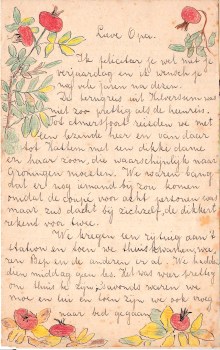 Lieve Opa.
Ik feliciteer je wel met je
verjaardag en ik wensch je
nog vele jaren na dezen.
De terugreis uit Hilversum was
niet zoo prettig als de heenreis.
Tot Amersfoort reisden we met
een lezende heer en van daar
tot Hattem met een dikke dame
en haar zoon, die waarschijnlijk naar
Groningen moesten. We waren bang
dat er nog iemand bij zou komen
omdat de coupé voor acht personen was
maar zus dacht bij zichzelf, de dikkert
rekent voor twee.
We kregen een rijtuig aan 't
station en toen we thuis kwamen, we-
ren Bep en de anderen er al. We hadden
dien middag geen les. Het was weer prettig
om thuis te zijn, 's avonds waren we
moe en lui en toen zijn we ook vroeg
naar bed gegaan.